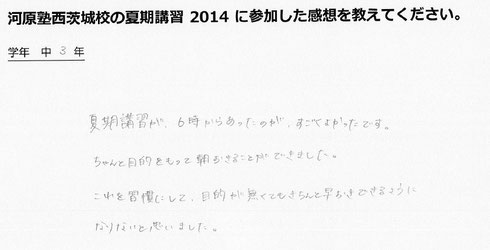 河原塾西茨城校の夏期講習 2014 に参加した感想を教えてください。
学年 中 3 年
夏期講習が、6時からあったのが、すごくよかったです。
ちゃんと目的をもって朝おきることができました。
これを習慣にして、目的が無くてもきちんと早おきできるように
なりたいと思いました。